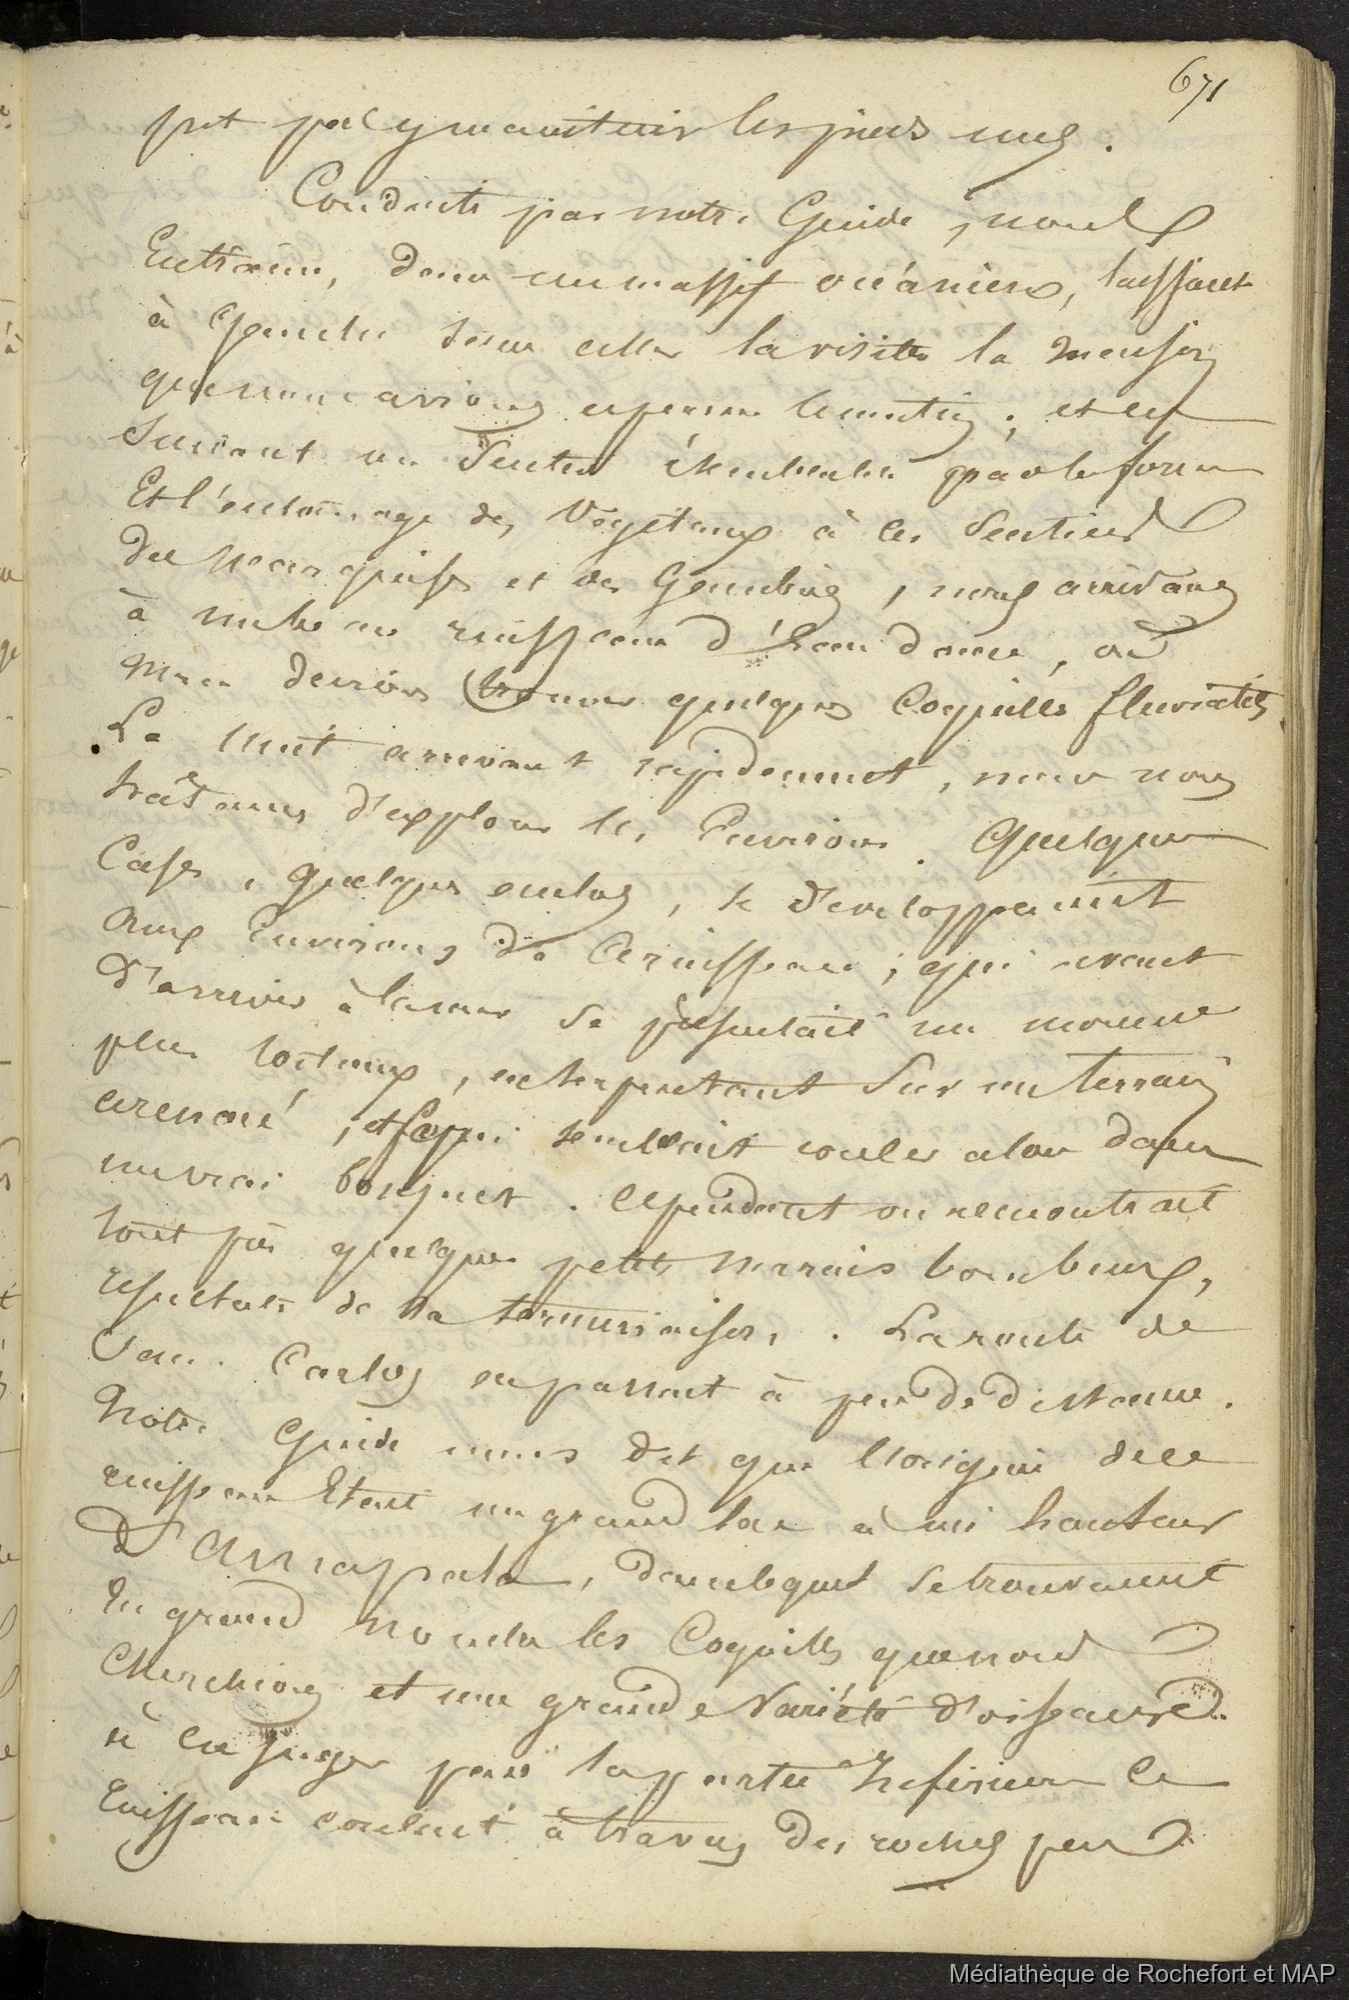 671
put pas y maintenir les pieds nus.
Conduits par notre Guide, nous
Entrâmes, dans un massif océanien, laissant
à Gauche sans aller la visiter la maison
que nous avions aperçue le matin; et en
Suivant un Sentier semblable par la forme
Et l'entourage des Végétaux à ces Sentiers
des Marquises et des Gambier, nous arrivâmes
à un beau ruisseau d'Eau douce, où
nous devions trouver quelques Coquilles fluviatiles
La nuit arrivant rapidement, nous nous
hâtâmes d'explorer les Environs. Quelques
Cases, quelques enclos, se développaient
aux Environs de ce ruisseau; qui avant
d'arriver à la mer se présentait un moment
plus tortueux, serpentant Sur un terrain
et qui semblait couler alors dans
un vrai bosquet. Cependant on rencontrait
quelques petits marais bourbeux,
résultats de la
. La route de
San. Carlos en passant à peu de distance.
Notre Guide nous dit que l'origine de ce
ruisseau Etait un grand lac à mi hauteur
, dans lequel se trouvaient
En grand nombre les Coquilles que nous
Cherchions et une grande Variété d'oiseaux.
à en juger par la partie Inférieure Ce
Ruisseau coulait à travers des roches peu
Médiathèque de Rochefort et MAP